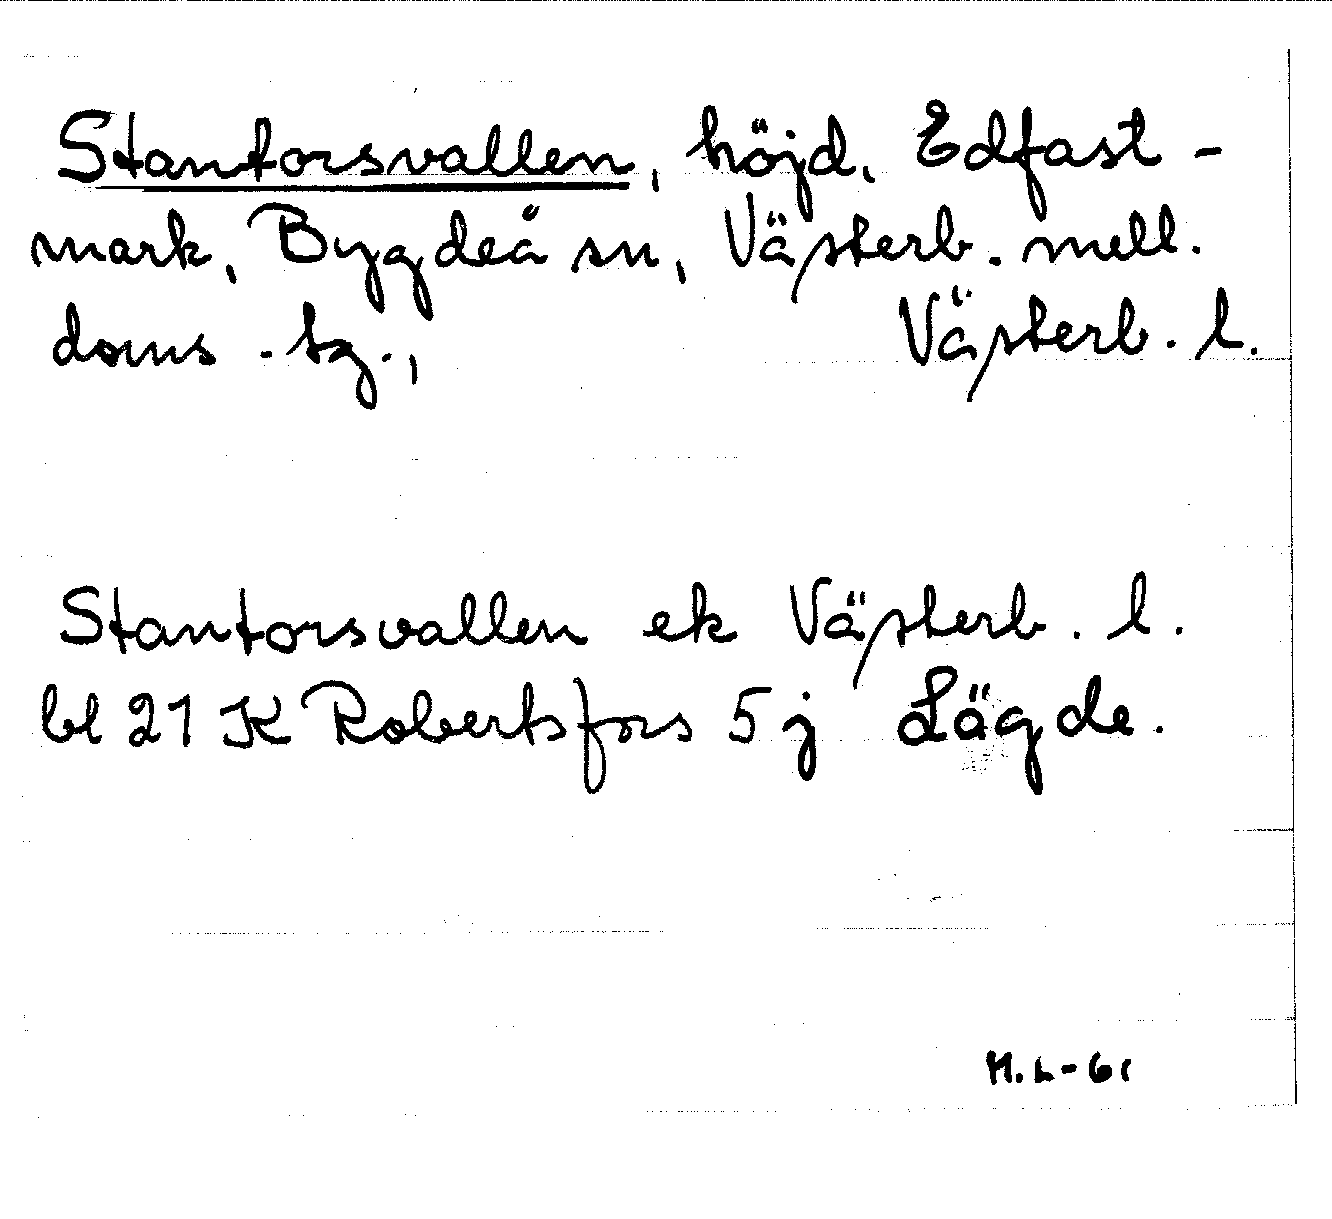 Stantorsvallen, höjd, Edfast-
mark, Bygdeå sn, Västerb. mell.
doms. tg., Västerb. l.
Stantorsvallen ek Västerb. l.
bl 21 K Robertsfors 5 j Lägde.
M.L-61